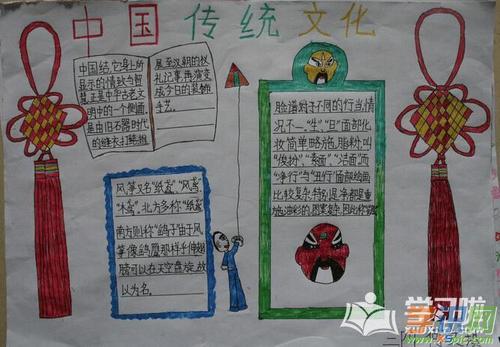 中国传统文化
中国结,它身上所
显示的情致与智
慧正是中华古老文
明中的一个侧面.
是由旧石器时代
的缝衣打结,
展至汉朝的仪
礼记事再演变
成今日的装饰
手艺.
风筝又名“纸鸢”、“风鸢、
木鸢”,北方多称“纸鸢
南方则称“鸽子”由于风
筝像鸽鹰那样千伸翅
膀可以在天空盘旋,故
以为名.
脸谱对于不同的行当,情
况不一.“生”、“旦”面部化
妆简单略施脂粉,叫
“俊扮”、“素面”、“洁面”.而
“净行”与“丑行”面部绘画
比较复杂,特别是净,都是重
施油彩的.图案复杂,因此称
学习啦
XUEXILA.COM